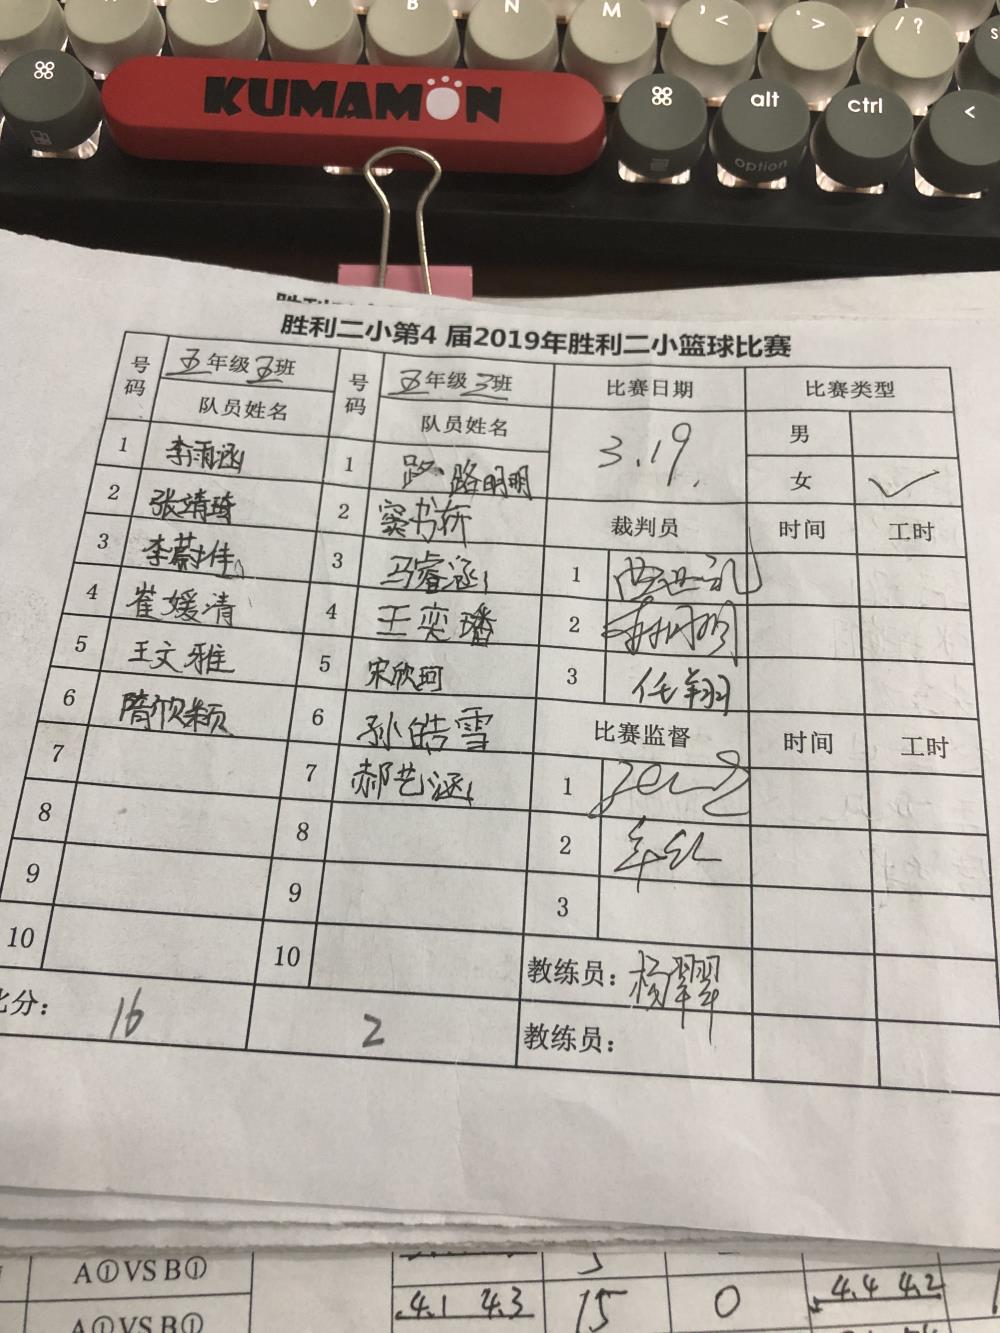 B N M , < . > / ?
⌘ KUMAMON ⌘ alt ctrl <
option
胜利二小第4 届2019年胜利二小篮球比赛
号码 五年级五班 号码 五年级三班 比赛日期 比赛类型
队员姓名 队员姓名 3.19. 男
1 李雨涵 1 路明明 女 ✓
2 张靖琦 2 窦书妍 裁判员 时间 工时
3 李蔚佳 3 马睿涵 1
4 崔媛清 4 王奕璠 2
5 王文雅 5 宋欣珂 3 任翔
6 隋欣颖 6 孙皓雪 比赛监督 时间 工时
7 7 郝艺涵 1
8 8 2
9 9 3
10 10 教练员：杨翠翠
比分： 16 2 教练员：
A①VS B①
4.1 4.3 15 0 4.4 4.2
A①VS B①